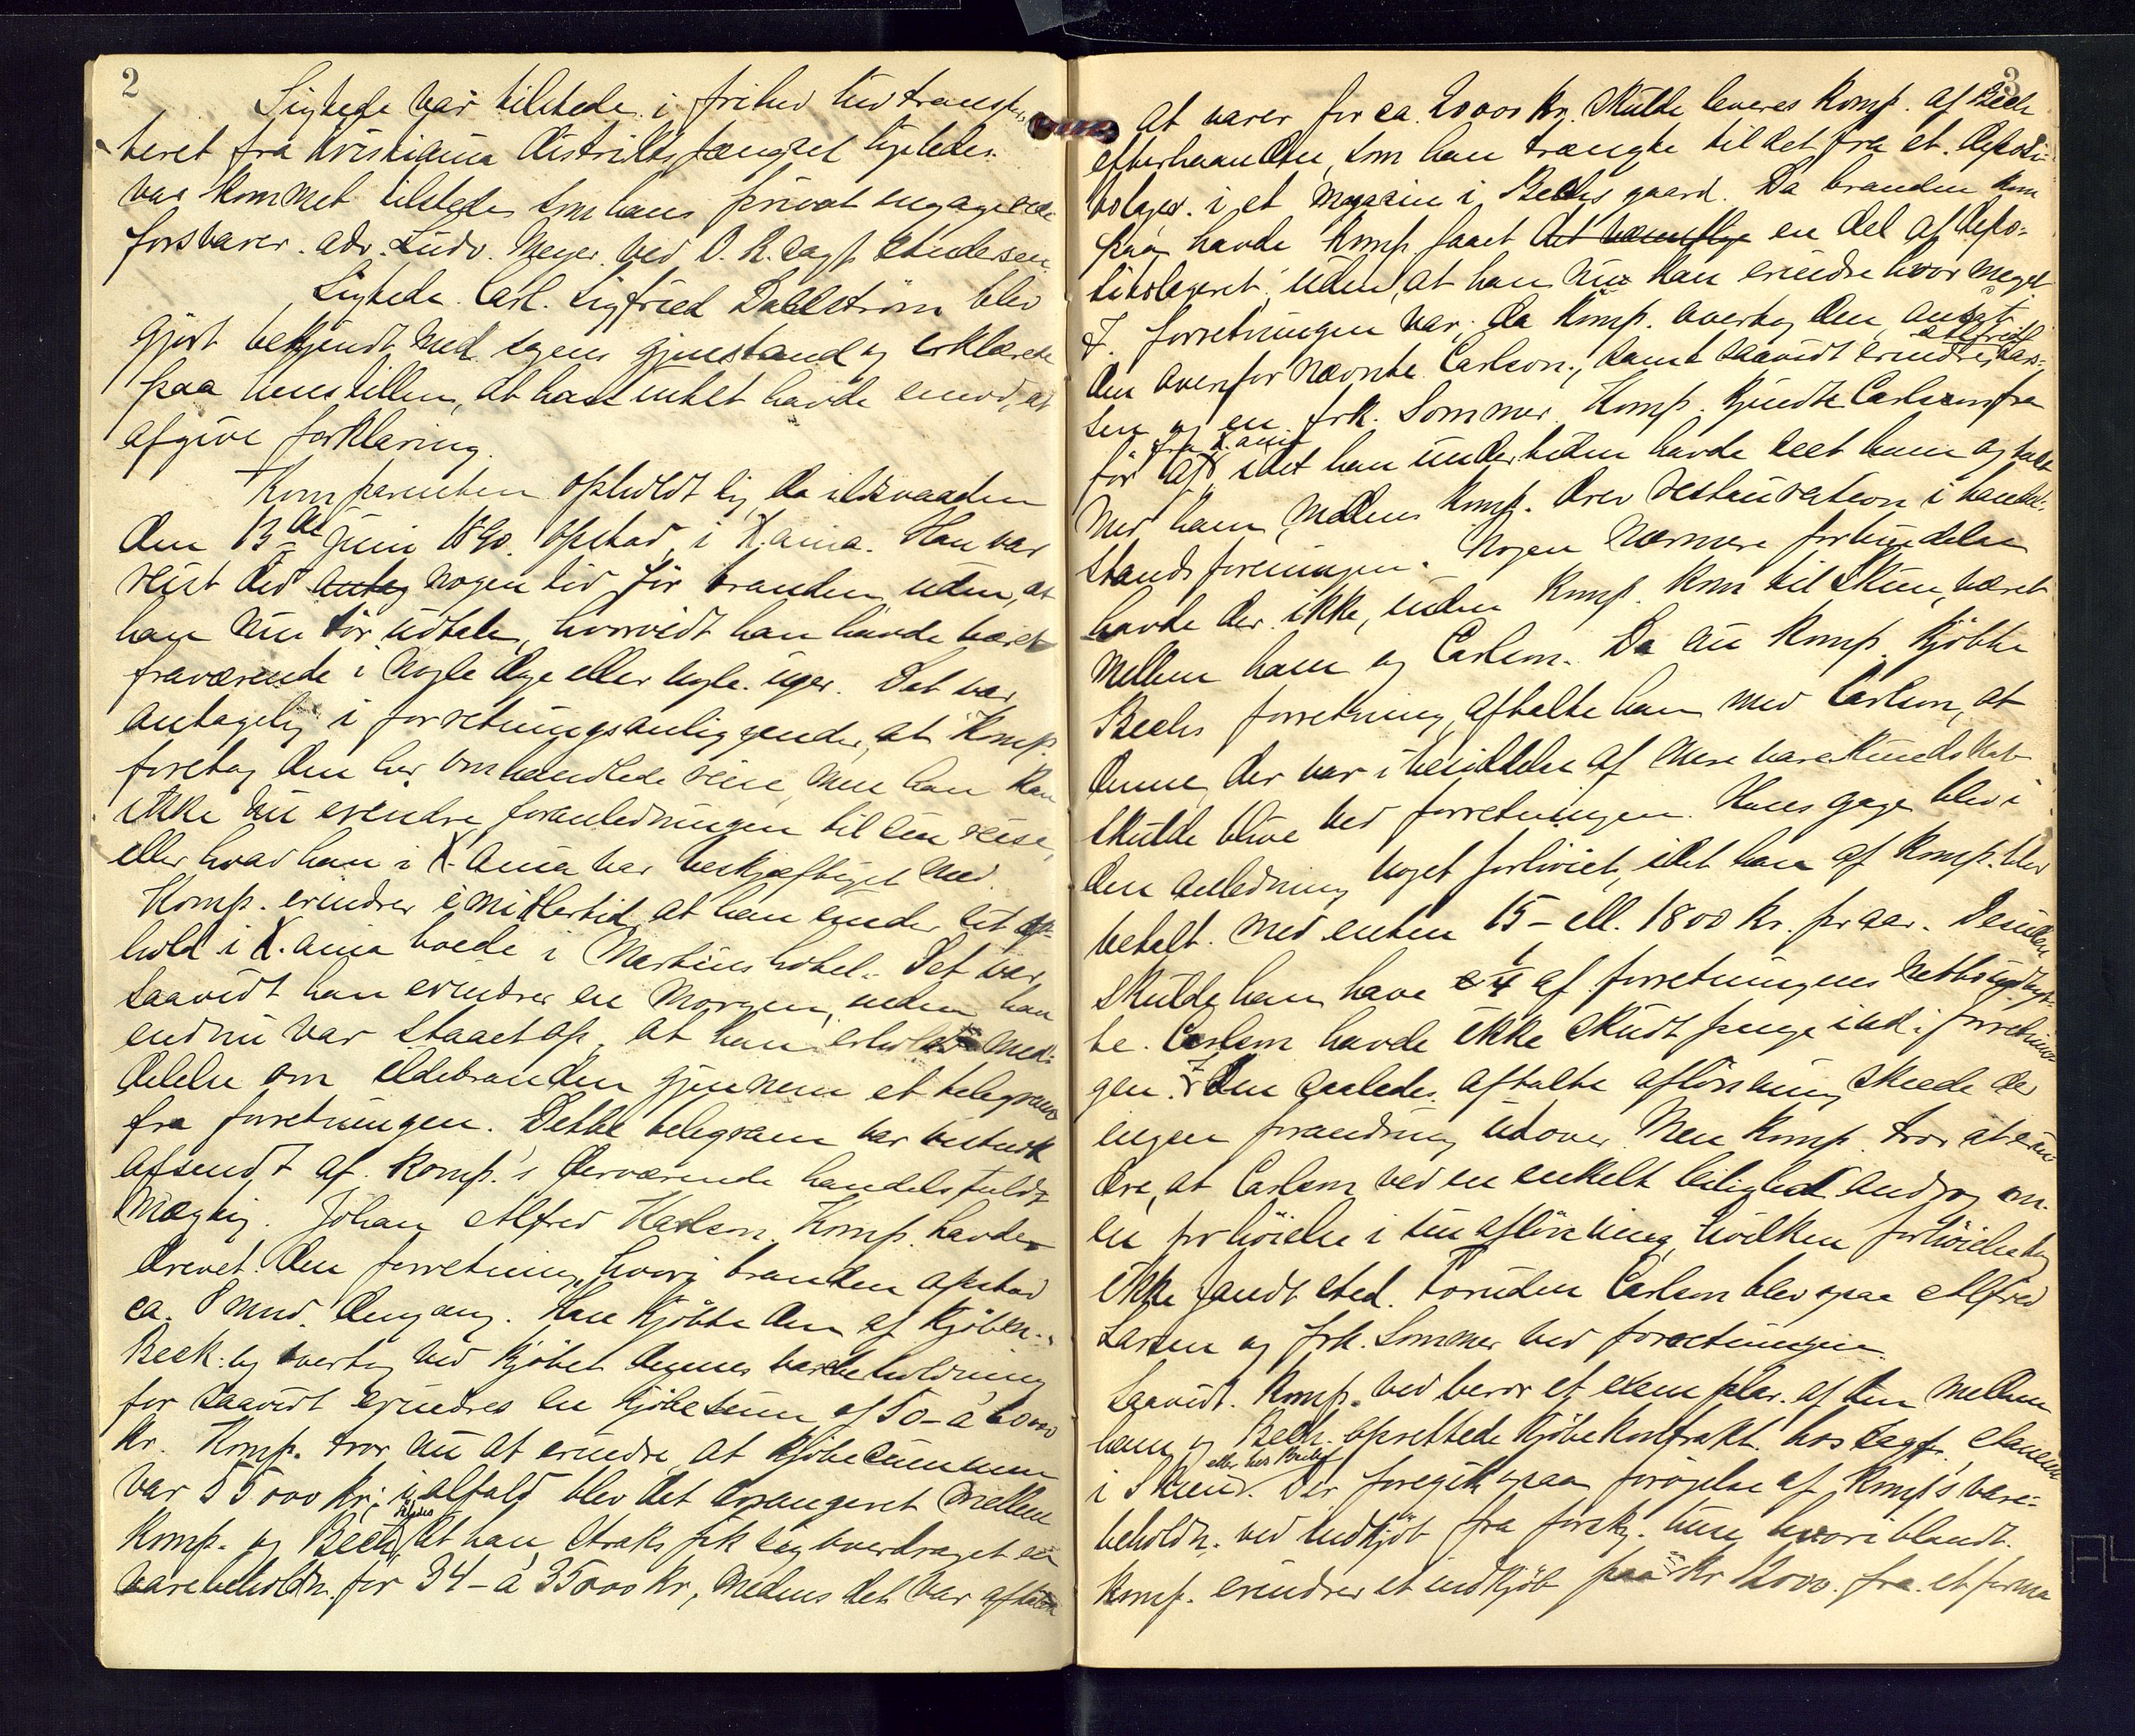 2
Sigtede var tilstede i frihed hid transpor-
teret fra Kristiania distriktsfængsel ligeledes
var kommet tilstede som hans privat engagerede
forsvarer adv. Ludv. Meyer ved O. R. sagf. Andersen.
Sigtede Carl Sigfried Dahlström blev
gjort bekjendt med sagens gjenstand og erklærede
paa henstillen, at han intet havde imod, at
afgive forklaring.
Komparenten opholdt sig, da ildsvaaden
den 13de Juni 1890 opstod, i X.ania. Han var
reist did antag nogen tid för branden, uden, at
han nu tör udtale, hvorvidt han havde været
fraværende i nogle dage eller nogle uger. Det var
antagelig i forretningsanliggender, at Komp.
foretog den her omhandlede reise, men han kan
ikke nu erindre foranledningen til sin reise,
eller hvad han i X.ania var beskjæftiget med.
Komp. erindrer imidlertid, at han under sit op-
hold i X.ania boede i Martins hotel. Det var
saavidt han erindrer en morgen, inden han
endnu var staaet op, at han erholdt med-
delelse om ildebranden gjennem et telegram
fra forretningen. Dette telegram var bestemt
afsendt af Komp.'s derværende handelsfuld-
mægtig Johan Alfred Karlson. Komp. havde
drevet den forretning, hvori branden opstod
ca. 8 mnd. dengang. Han kjöbte den af Kjöbm.
Beck og overtog ved kjöbet dennes varebeholdning
for saavidt erindres en kjöbesum af 50- à 60000
Kr. Komp. tror nu at erindre, at kjöbesummen
var 55000 kr; i alfald blev det arrangeret mellem
Komp. og Beck saaledes, at han straks fik sig overdraget en
varebeholdn. for 34- à 35000 Kr, medens det var aftalt
3
at varer for ca. 20000 Kr. skulde leveres Komp. af Beck
efterhaanden, som han trængte til det fra et deposi-
tolager i et magasin i Becks gaard. Da branden kom
paa havde Komp. faaet det væsentlige en del af depo-
sitolageret, uden, at han nu kan erindre hvor meget.
I forretningen var, da Komp. overtog den, ansat
den ovenfor nævnte Carlson, samt saavidt erindres Alfred Lar-
sen og en frk. Sommer. Komp. kjendte Carlson fra
för af fra X.ania, idet han undertiden havde seet ham og talt
med ham, medens Komp. drev restauration i handel-
standsforeningen. Nogen nærmere forbindelse
havde der ikke, inden Komp. kom til Skien, været
mellem ham og Carlson. Da nu Komp. kjöbte
Becks forretning, aftalte han med Carlson, at
denne, der var i besiddelse af mere varekundskab
skulde blive ved forretningen. Hans gage blev i
den anledning noget forhöiet, idet han af Komp. blev
betalt med enten 15- ell. 1800 kr. pr aar. Desuden
skulde han have 1/4 af forretningens nettoudbyt-
te. Carlson havde ikke skudt penge ind i forretnin-
gen. I den saaledes aftalte aflönning skeede der
ingen forandring udover. Men Komp. tror at erin-
dre, at Carlson ved en enkelt leilighed androg om
en forhöielse i sin aflönning, hvilken forhöielse dog
ikke fandt sted. Foruden Carlson blev ogsaa Alfred
Larsen og frk. Sommer ved forretningen.
Saavidt Komp. ved beror et exemplar af den mellem
ham og Beck oprettede kjöbekontrakt hos sagf.
i Skien eller hos Beck. Der foregik ogsaa forögelse af Komp's vare-
beholdn. ved indkjöb fra forskj. huse, hvoriblandt
Komp. erindrer et indkjöb paa Kr 12000 fra et firma